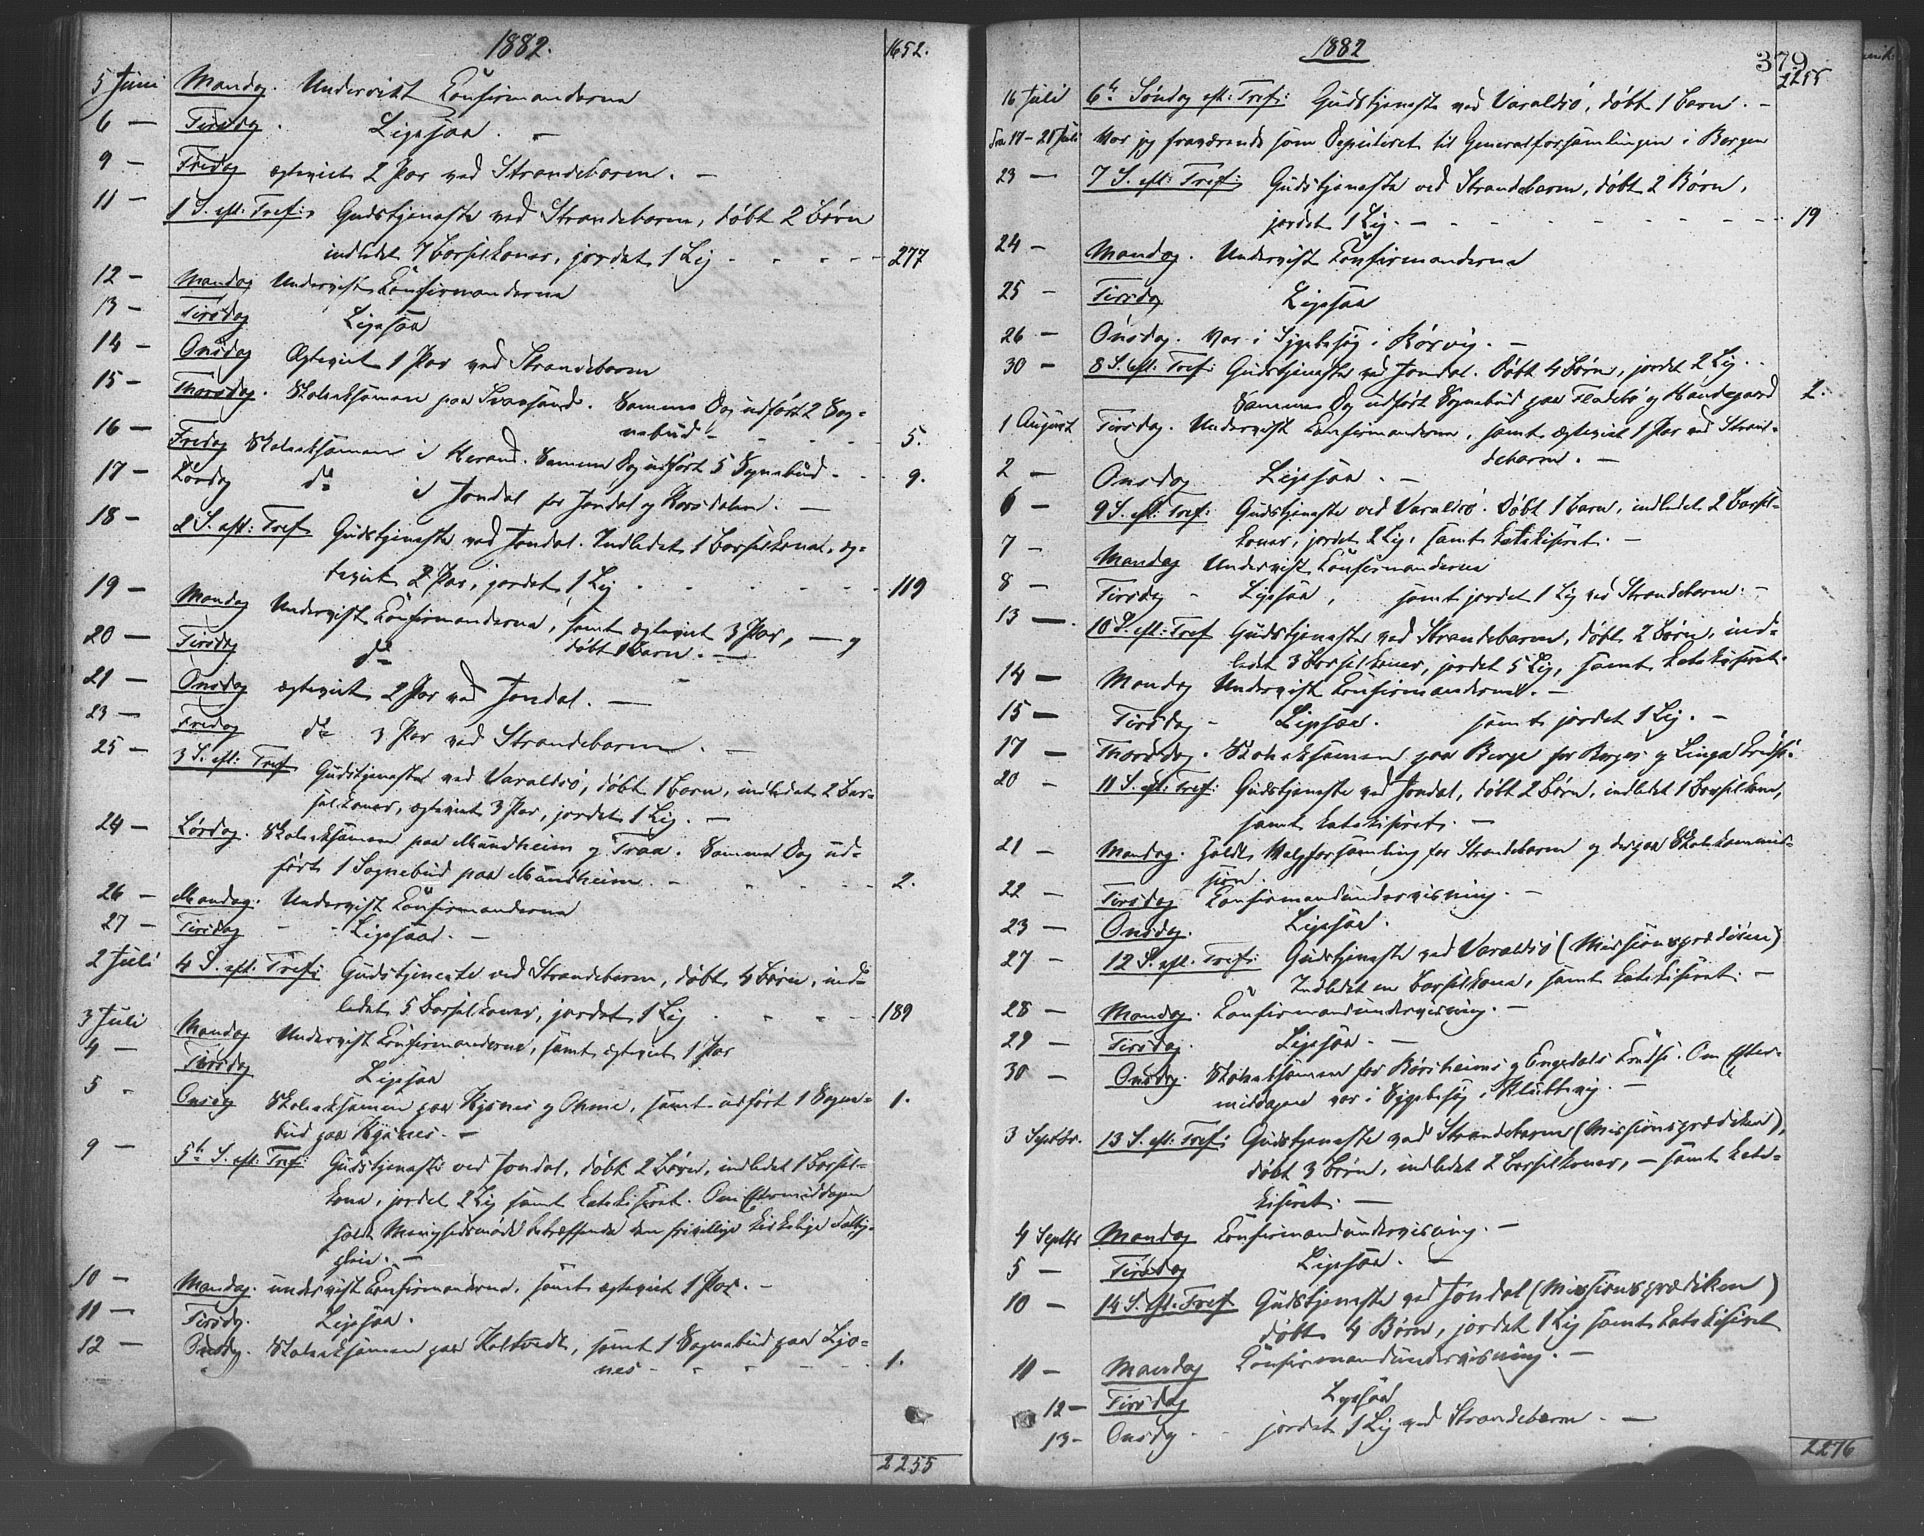 1882.
1652.
5 Juni Mandag. Undervist Konfirmanderne
6 — Tirsdag. Ligesaa. —
9 — Fredag ægteviet 2 Par ved Strandebarm. —
11 — 1 S. eft. Tref: Gudstjeneste ved Strandebarm, døbt 2 Børn
indledet 7 Barselkoner, jordet 1 Lig - - - - 277
12 — Mandag Undervist Konfirmanderne
13 — Tirsdag Ligesaa
14 — Onsdag Ægteviet 1 Par ved Strandebarm
15 — Thorsdag. Skoleeksamen paa Svaasand. Samme Dag udført 2 Sog-
nebud - - - - 5.
16 — Fredag Skoleeksamen i Herand. Samme Dag udført 5 Sognebud. - 9.
17 — Lørdag do i Jondal for Jondal og Korsdalen. —
18 — 2 S. eft: Tref Gudstjeneste ved Jondal. Indledet 1 Barselkone, æg-
teviet 2 Par, jordet 1 Lig - - - - 119
19 — Mandag Undervist Konfirmanderne, samt ægteviet 3 Par, — og
døbt 1 Barn. —
20 — Tirsdag do
21 — Onsdag ægteviet 2 Par ved Jondal. —
23 — Fredag do 3 Par ved Strandebarm. —
25 — 3 S. eft: Tref Gudstjeneste ved Varaldsø, døbt 1 Barn, indledet 2 Bar-
selkoner, ægteviet 3 Par, jordet 1 Lig. —
24 — Lørdag. Skoleeksamen paa Mundheim og Traa. Samme Dag ud-
ført 1 Sognebud paa Mundheim. - - - - 2.
26 — Mandag. Undervist Konfirmanderne
27 — Tirsdag - - Ligesaa. —
2 Juli 4 S. eft. Tref: Gudstjeneste ved Strandebarm, døbt 4 Børn, ind-
ledet 5 Barselkoner, jordet 1 Lig - - - - 189
3 Juli Mandag Undervist Konfirmanderne, samt ægteviet 1 Par
4 — Tirsdag Ligesaa
5 - Onsdag Skoleeksamen paa Hysnes og Omme, samt udført 1 Sogne- 1.
bud paa Hysnes. —
9 — 5te S. eft: Tref: Gudstjeneste ved Jondal, døbt 2 Børn, indledet 1 Barsel-
kone, jordet 2 Lig samt katekiseret. Om Eftermiddagen
holdt Menighedsmøde betræffende den frivillige kirkelige Fattig-
pleie. —
10 — Mandag. undervist Konfirmanderne, samt ægteviet 1 Par. —
11 — Tirsdag. Ligesaa.
12 — Onsdag. Skoleeksamen paa Holtvedt, samt 1 Sognebud paa Ljo-
nes - - - - 1.
2255
1882
379
2255
16 Juli 6te Søndag eft: Tref: Gudstjeneste ved Varaldsø, døbt 1 Barn. —
Fra 17 - 21 Juli Var jeg fraværende som Deputeret til Generalforsamlingen i Bergen
23 — 7 S. eft: Tref: Gudstjeneste ved Strandebarm, døbt 2 Børn,
jordet 1 Lig. — - - - - 19
24 — Mandag. Undervist Konfirmanderne
25 — Tirsdag Ligesaa
26 — Onsdag. Var i Sygebesøg i Børvig. —
30 — 8 S. eft: Tref: Gudstjeneste ved Jondal. Døbt 4 Børn, jordet 2 Lig.
Samme Dag udført Sognebud paa Fladebø og Haandegaard 2.
1 August Tirsdag. Undervist Konfirmanderne, samt ægteviet 1 Par ved Strande-
barm. —
2 — Onsdag Ligesaa. —
6 — 9 S. eft: Tref: Gudstjeneste ved Varaldsø. Døbt 1 Barn, indledet 2 Barsel-
koner, jordet 2 Lig, samt katekiseret. —
7 — Mandag Undervist Konfirmanderne
8 — Tirsdag - Ligesaa, samt jordet 1 Lig ved Strandebarm. —
13 — 10 S. eft: Tref Gudstjeneste ved Strandebarm, døbt 2 Børn, ind-
ledet 3 Barselkoner, jordet 5 Lig, samt katekiseret.
14 — Mandag Undervist Konfirmanderne. —
15 — Tirsdag - Ligesaa. samt jordet 1 Lig. —
17 — Thorsdag. Skoleeksamen paa Berge for Berges og Linga Kreds.
20 — 11 S. eft: Tref: Gudstjeneste ved Jondal, døbt 2 Børn, indledet 1 Barselkone,
samt katekiseret. —
21 — Mandag. Holdt Valgforsamling for Strandebarm og derpaa Skolekommis-
sion.
22 — Tirsdag Konfirmandundervisning. —
23 — Onsdag. Ligesaa.
27 — 12 S. eft. Tref: Gudstjeneste ved Varaldsø (Missionsprædiken)
Indledet en Barselkone, samt katekiseret. —
28 — Mandag. Konfirmandundervisning. —
29 — Tirsdag. Ligesaa. —
30 — Onsdag. Skoleeksamen for Børsheims og Engedals Kreds. Om Efter-
middagen var i Sygebesøg i Klubbevig. —
3 Septbr. 13 S. eft. Tref: Gudstjeneste ved Strandebarm (Missionsprædiken),
døbt 3 Børn, indledet 2 Barselkoner, — samt kate-
kiseret. —
4 Septbr Mandag Konfirmandundervisning. —
5 — Tirsdag Ligesaa. —
10 — 14 S. eft. Tref Gudstjeneste ved Jondal (Missionsprædiken)
døbt 4 Børn, jordet 1 Lig samt katekiseret
11 — Mandag Konfirmandundervisning. —
12 — Tirsdag Ligesaa
13 - Onsdag - jordet 1 Lig ved Strandebarm. —
2276